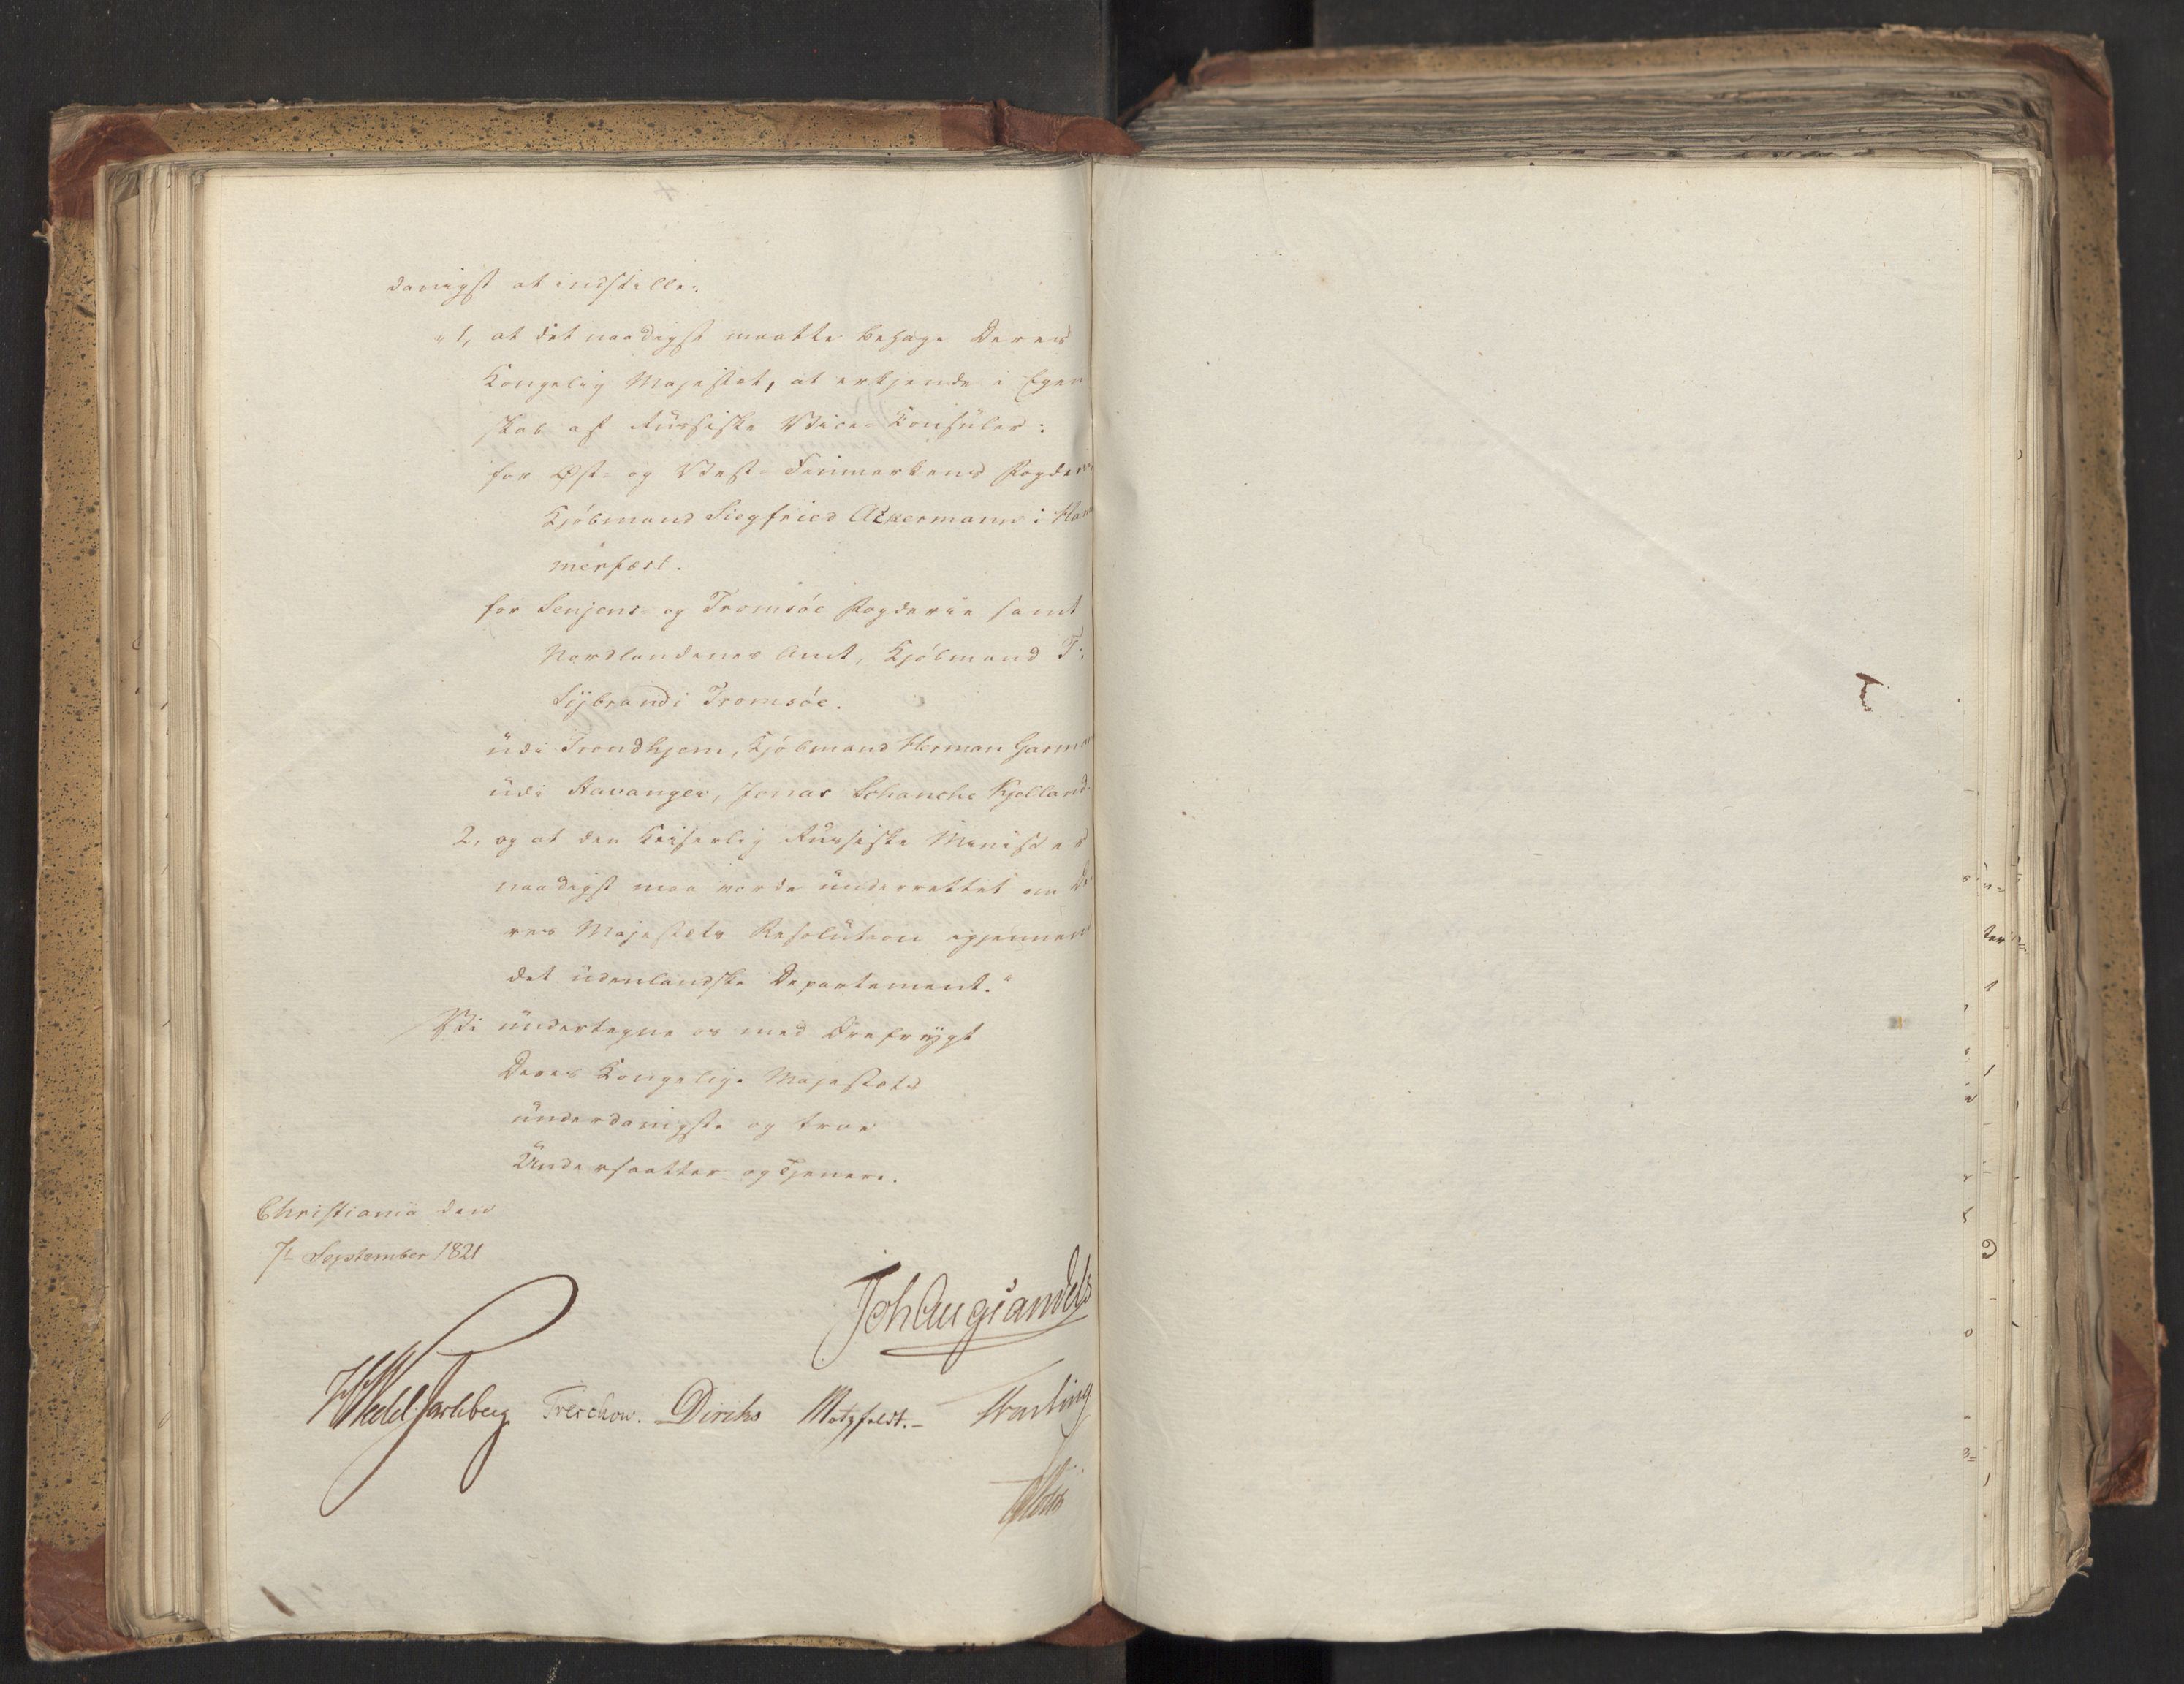 danigst at indstille:
"1, at det naadigst maatte behage Deres
Kongelig Majestæt, at erkjende i Egen
skab af Russiske Vice Konsuler:
for Øst- og Vest-Finmarkens Fogderi
Kjøbmand Siegfried Akermann i Ham
merfest.
for Senjens og Tromsøe Fogderie samt
Nordlandenes Amt, Kjøbmand T:
Sijbrand i Tromsøe.
udi Trondhjem, Kjøbmand Herman Garmann
udi Stavanger, Jonas Schanche Kjelland.
2, og at den Keiserlig Russiske Minister
naadigst maa vorde underrettet om De
res Majestæts Resolution igjennem
det udenlandske Departement."
Vi undertegne os med Ærefrygt
Deres Kongelige Majestæts
underdanigste og troe
Undersaatter og Tjenere.
Christiania den
7de September 1821
Joh Aug Sandels
HWedel Jarlsberg Treschow. Diriks Motzfeldt.-